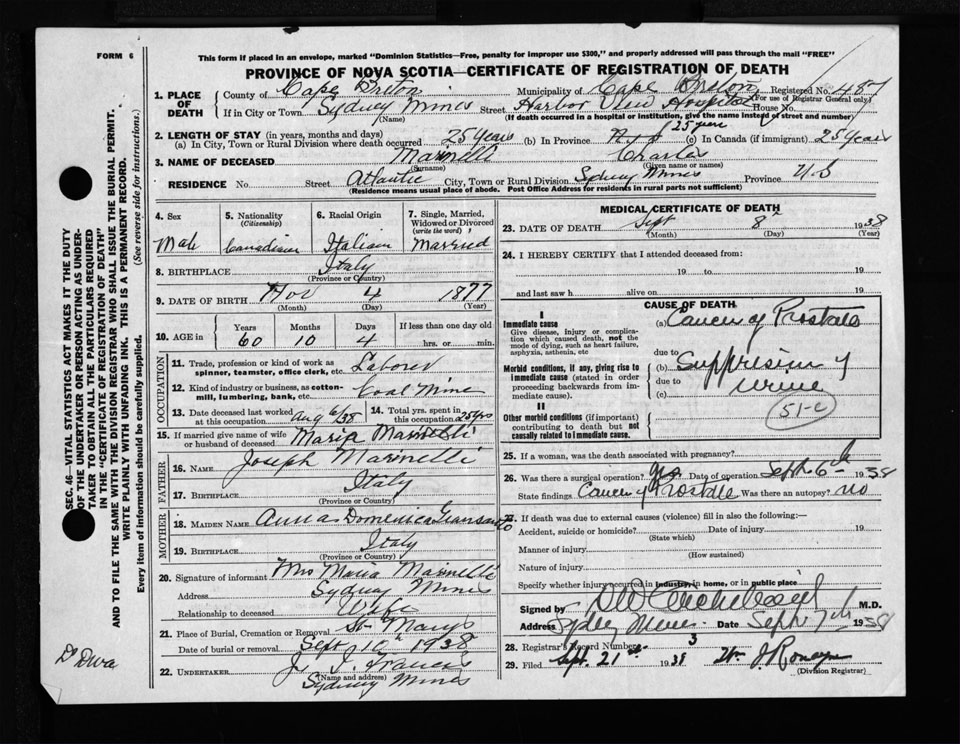 FORM 6
This form if placed in an envelope, marked "Dominion Statistics—Free, penalty for improper use $300," and properly addressed will pass through the mail "FREE"
PROVINCE OF NOVA SCOTIA—CERTIFICATE OF REGISTRATION OF DEATH
1. PLACE OF DEATH County of Cape Briton Municipality of Cape Briton Registered No. 487
(For use of Registrar General only.)
If in City or Town Sydney Mines Street Harbor View Hospital House No.
(Name) (If death occurred in a hospital or institution, give the name instead of street and number)
2. LENGTH OF STAY (in years, months and days)
(a) In City, Town or Rural Division where death occurred 25 Years (b) In Province N.S 25 years (c) In Canada (if immigrant) 25 Years
3. NAME OF DECEASED Marinelli Charles
(Surname) (Given name or names)
RESIDENCE No. Street Atlantic City, Town or Rural Division Sydney Mines Province N S
(Residence means usual place of abode. Post Office Address for residents in rural parts not sufficient)
4. Sex Male
5. Nationality (Citizenship) Canadian
6. Racial Origin Italian
7. Single, Married, Widowed or Divorced (write the word) Married
8. BIRTHPLACE Italy
(Province or Country)
9. DATE OF BIRTH Nov 4 1877
(Month) (Day) (Year)
10. AGE Years 60 Months 10 Days 4 If less than one day old hrs. or min.
OCCUPATION
11. Trade, profession or kind of work as spinner, teamster, office clerk, etc. Laborer
12. Kind of industry or business, as cotton-mill, lumbering, bank, etc. Coal Mine
13. Date deceased last worked at this occupation Aug 6/38 14. Total yrs. spent in this occupation 25 yrs
15. If married give name of wife or husband of deceased Maria Marinelli
FATHER
16. NAME Joseph Marinelli
17. BIRTHPLACE Italy
(Province or Country)
MOTHER
18. MAIDEN NAME Anna Domenica
19. BIRTHPLACE Italy
(Province or Country)
20. Signature of informant Mrs Maria Marinelli
Address Sydney Mines
Relationship to deceased Wife
21. Place of Burial, Cremation or Removal St Marys
Date of burial or removal Sept 10th 1938
22. UNDERTAKER J. J. Francis
(Name and address)
Sydney Mines
MEDICAL CERTIFICATE OF DEATH
23. DATE OF DEATH Sept 8th 1938
(Month) (Day) (Year)
24. I HEREBY CERTIFY that I attended deceased from:
19 to 19
and last saw h alive on 19
CAUSE OF DEATH
I
Immediate cause
Give disease, injury or complication which caused death, not the mode of dying, such as heart failure, asphyxia, asthenia, etc
(a) Cancer of Prostate
due to
Morbid conditions, if any, giving rise to immediate cause (stated in order proceeding backwards from immediate cause).
(b) Suppression of
due to
(c) urine
51-c
II
Other morbid conditions (if important) contributing to death but not causally related to immediate cause.
25. If a woman, was the death associated with pregnancy?
26. Was there a surgical operation? yes Date of operation Sept 6th 1938
State findings Cancer of Prostate Was there an autopsy? no
27. If death was due to external causes (violence) fill in also the following:—
Accident, suicide or homicide? Date of injury 19
(State which)
Manner of injury
(How sustained)
Nature of injury
Specify whether injury occurred in industry, in home, or in public place
Signed by M.D.
Address Sydney Mines Date Sept 7th 1938
28. Registrar's Record Number 3
29. Filed Sept. 21st 1938 Wm J.
(Division Registrar)
SEC. 46—VITAL STATISTICS ACT MAKES IT THE DUTY
OF THE UNDERTAKER OR PERSON ACTING AS UNDER-
TAKER TO OBTAIN ALL THE PARTICULARS REQUIRED
IN THE "CERTIFICATE OF REGISTRATION OF DEATH"
AND TO FILE THE SAME WITH THE DIVISION REGISTRAR WHO SHALL ISSUE THE BURIAL PERMIT.
WRITE PLAINLY WITH UNFADING INK. THIS IS A PERMANENT RECORD.
Every item of information should be carefully supplied. (See reverse side for instructions.)